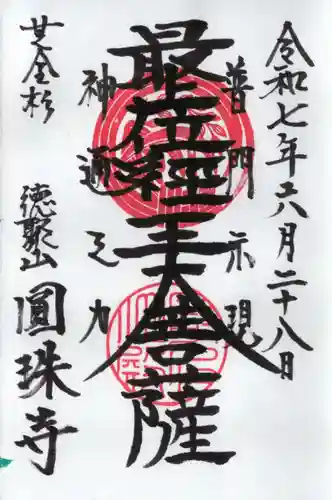 令和七年六月二十八日
普門示現
最上位経王大菩薩
神通之力
甘金杉
徳聚山
圓珠寺